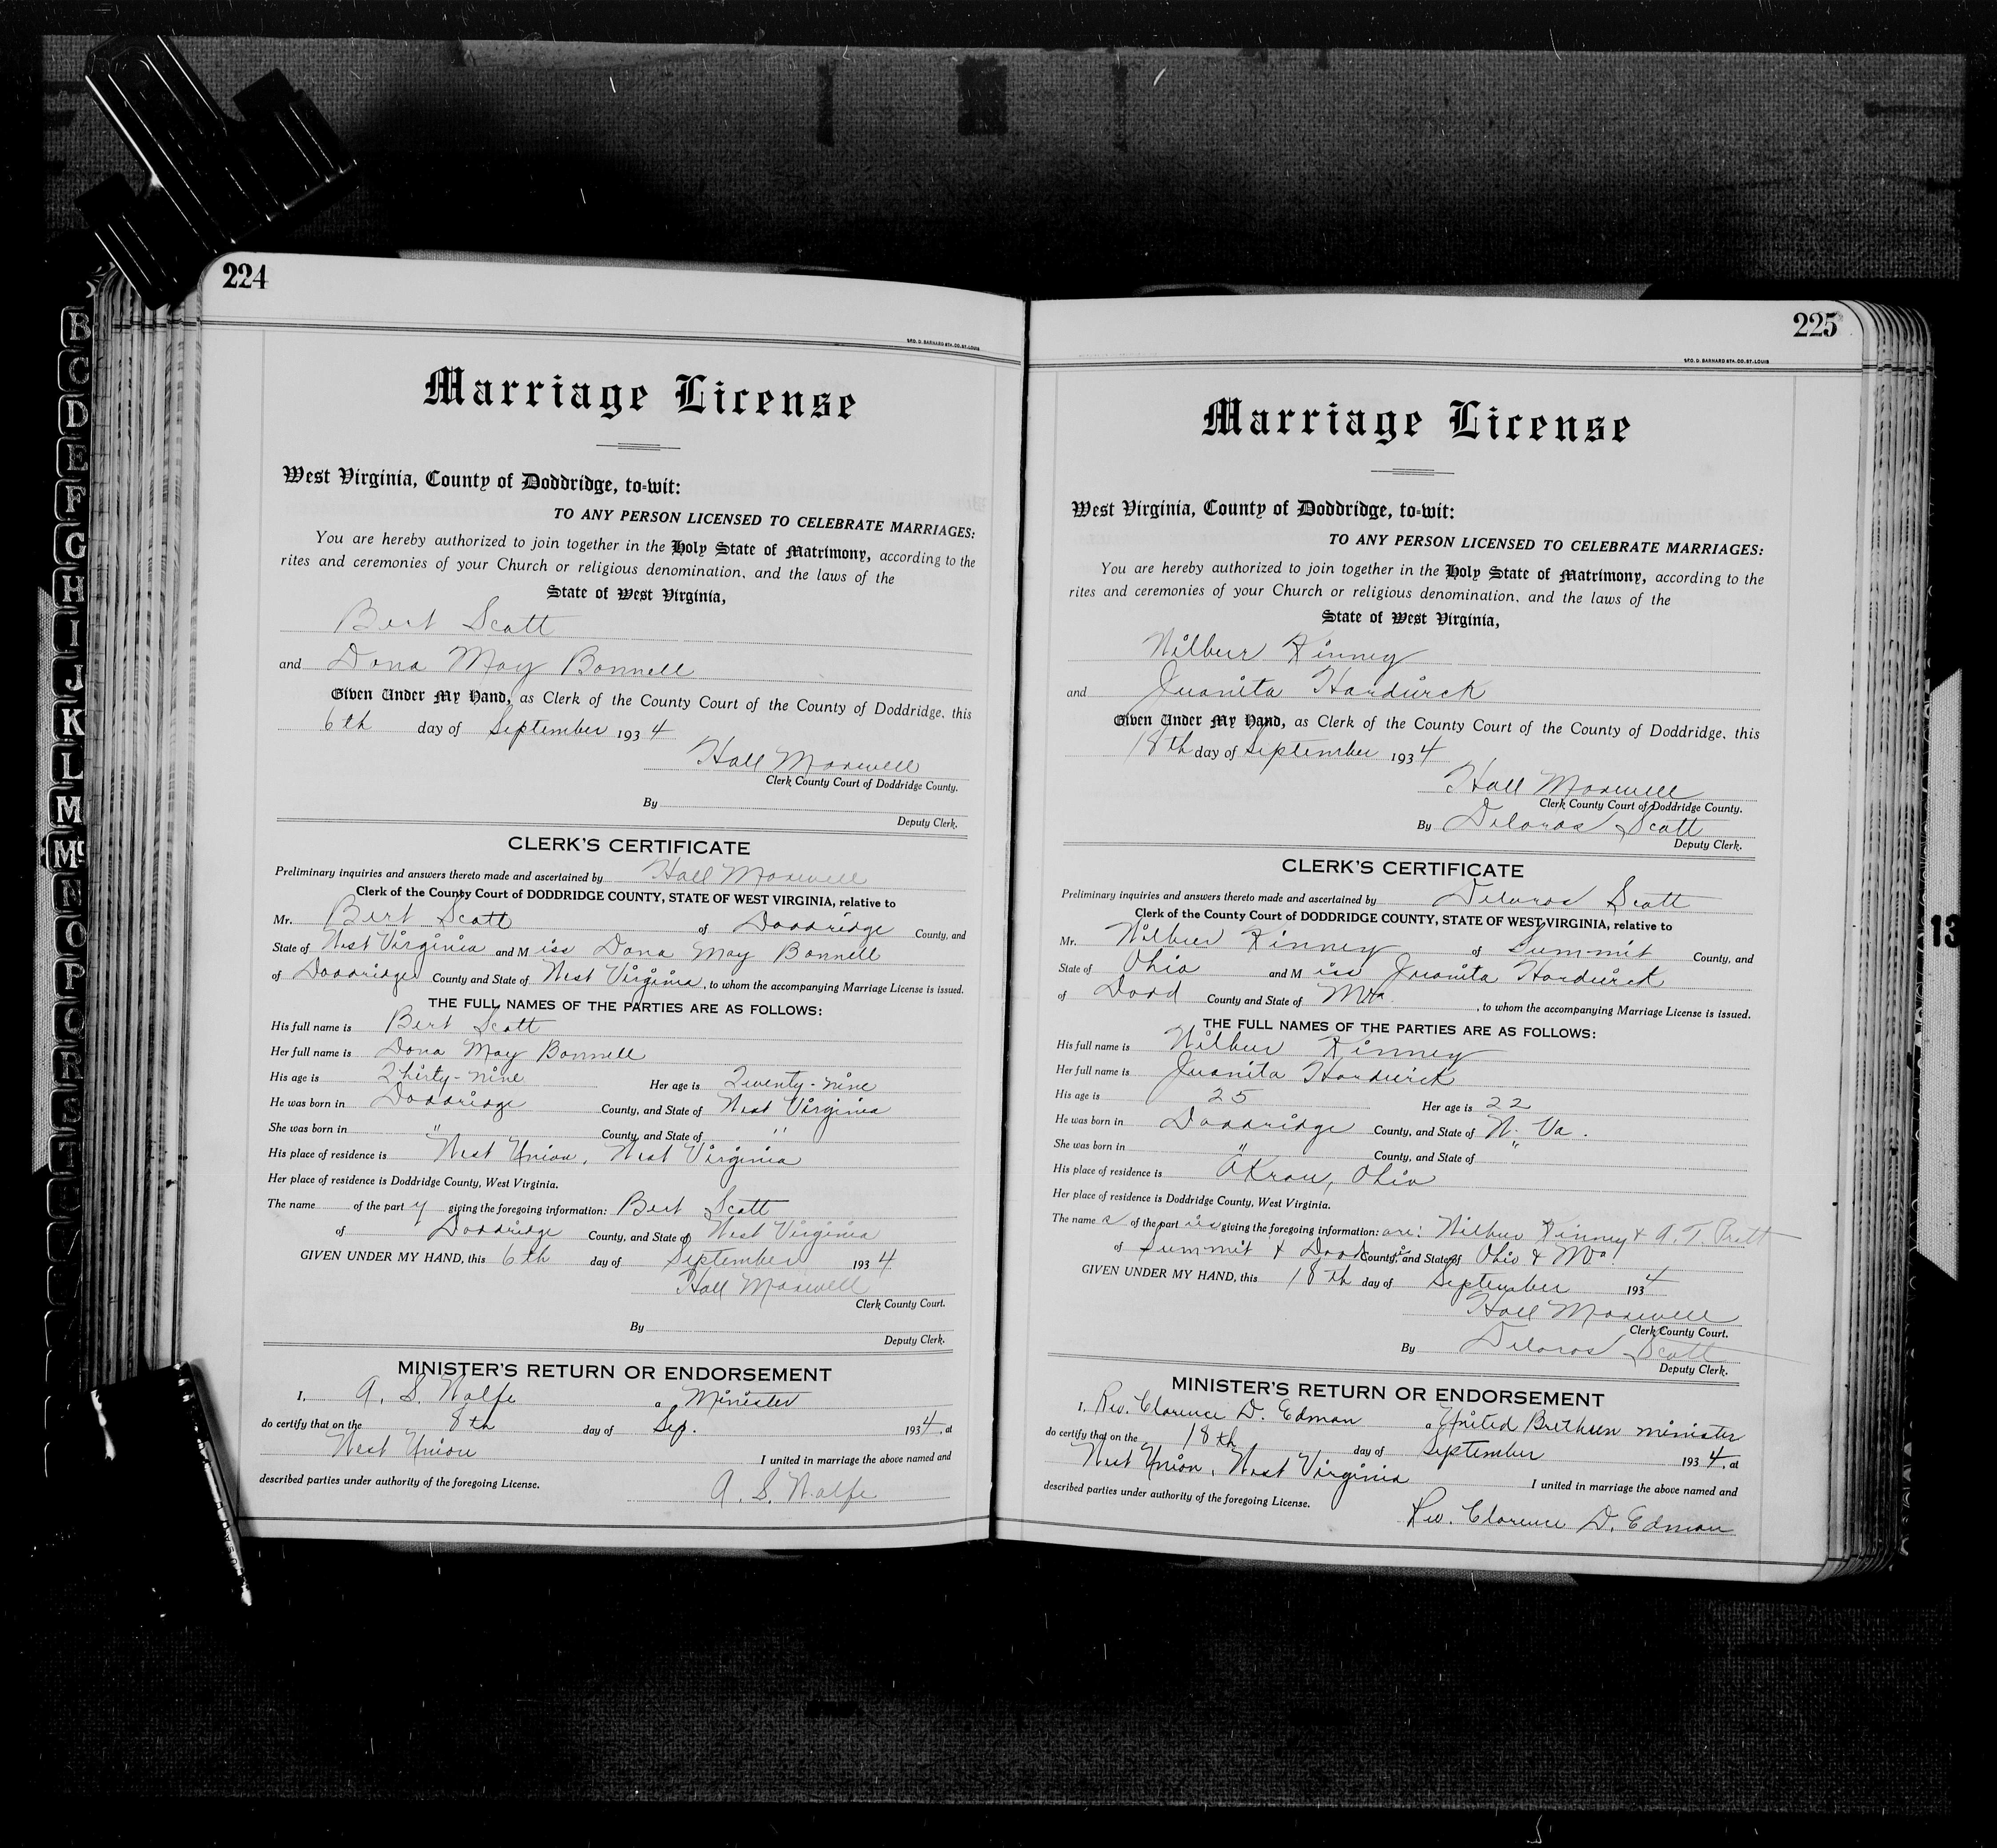 224
GEO. D. BARNARD STA. CO. ST. LOUIS
Marriage License
West Virginia, County of Doddridge, to-wit:
TO ANY PERSON LICENSED TO CELEBRATE MARRIAGES:
You are hereby authorized to join together in the Holy State of Matrimony, according to the
rites and ceremonies of your Church or religious denomination, and the laws of the
State of West Virginia,
Bert Scott
and Dona May Bonnell
Given Under My Hand, as Clerk of the County Court of the County of Doddridge, this
6th day of September 1934
Hall Maxwell
Clerk County Court of Doddridge County.
By
Deputy Clerk.
CLERK'S CERTIFICATE
Preliminary inquiries and answers thereto made and ascertained by Hall Maxwell
Clerk of the County Court of DODDRIDGE COUNTY, STATE OF WEST VIRGINIA, relative to
Mr. Bert Scott of Doddridge County, and
State of West Virginia and Miss Dona May Bonnell
of Doddridge County and State of West Virginia, to whom the accompanying Marriage License is issued.
THE FULL NAMES OF THE PARTIES ARE AS FOLLOWS:
His full name is Bert Scott
Her full name is Dona May Bonnell
His age is Thirty-nine Her age is Twenty-nine
He was born in Doddridge County, and State of West Virginia
She was born in " County, and State of "
His place of residence is West Union, West Virginia
Her place of residence is Doddridge County, West Virginia.
The name of the party giving the foregoing information: Bert Scott
of Doddridge County, and State of West Virginia
GIVEN UNDER MY HAND, this 6th day of September 1934
Hall Maxwell
Clerk County Court.
By
Deputy Clerk.
MINISTER'S RETURN OR ENDORSEMENT
I, A. S. Wolfe a Minister
do certify that on the 8th day of Sep. 1934, at
West Union I united in marriage the above named and
described parties under authority of the foregoing License.
A. S. Wolfe
225
GEO. D. BARNARD STA. CO. ST. LOUIS
Marriage License
West Virginia, County of Doddridge, to-wit:
TO ANY PERSON LICENSED TO CELEBRATE MARRIAGES:
You are hereby authorized to join together in the Holy State of Matrimony, according to the
rites and ceremonies of your Church or religious denomination, and the laws of the
State of West Virginia,
Wilbur Kinney
and Juanita Hardwick
Given Under My Hand, as Clerk of the County Court of the County of Doddridge, this
18th day of September 1934
Hall Maxwell
Clerk County Court of Doddridge County.
By Deloros Scott
Deputy Clerk.
CLERK'S CERTIFICATE
Preliminary inquiries and answers thereto made and ascertained by Deloros Scott
Clerk of the County Court of DODDRIDGE COUNTY, STATE OF WEST VIRGINIA, relative to
Mr. Wilbur Kinney of Summit County, and
State of Ohio and Miss Juanita Hardwick
of Dodd County and State of WVa. , to whom the accompanying Marriage License is issued.
THE FULL NAMES OF THE PARTIES ARE AS FOLLOWS:
His full name is Wilbur Kinney
Her full name is Juanita Hardwick
His age is 25 Her age is 22
He was born in Doddridge County, and State of W. Va.
She was born in " County, and State of "
His place of residence is Akron, Ohio
Her place of residence is Doddridge County, West Virginia.
The names of the parties giving the foregoing information: are: Wilbur Kinney & A. T. Pratt
of Summit & County, and State of Ohio & WVa.
GIVEN UNDER MY HAND, this 18th day of September 1934
Hall Maxwell
Clerk County Court.
By Deloros Scott
Deputy Clerk.
MINISTER'S RETURN OR ENDORSEMENT
I, Rev. Clarence D. Edman a United Brethren minister
do certify that on the 18th day of September 1934, at
West Union, West Virginia I united in marriage the above named and
described parties under authority of the foregoing License.
Rev. Clarence D. Edman
B
C
D
E
F
G
H
I
J
K
L
M
Mc
N
O
P
Q
R
S
T
13